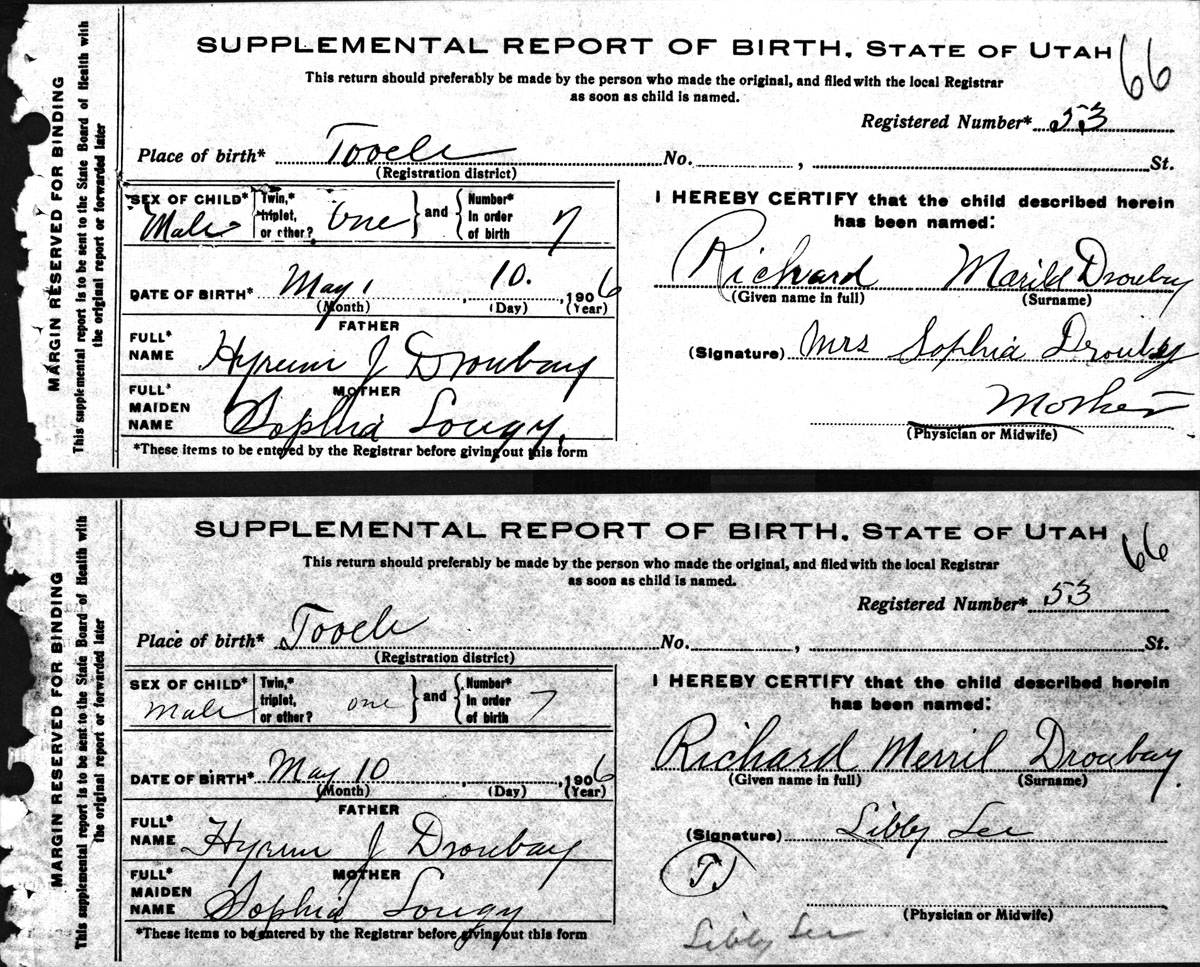 SUPPLEMENTAL REPORT OF BIRTH. STATE OF UTAH 66
This return should preferably be made by the person who made the original, and filed with the local Registrar
as soon as child is named.
Registered Number* 53
Place of birth* Tooele No. , St.
(Registration district)
SEX OF CHILD* Male
Twin,* triplet, or other? One } and { Number* in order of birth 7
DATE OF BIRTH* May 10. , 1906
(Month) (Day) (Year)
FATHER
FULL* NAME Hyrum J Droubay
MOTHER
FULL* MAIDEN NAME Sophia Lougy.
*These items to be entered by the Registrar before giving out this form
I HEREBY CERTIFY that the child described herein
has been named:
Richard Marild Drouby
(Given name in full) (Surname)
(Signature) Mrs Sophia Drouby
Mother
(Physician or Midwife)
MARGIN RESERVED FOR BINDING
This supplemental report is to be sent to the State Board of Health with
the original report or forwarded later
SUPPLEMENTAL REPORT OF BIRTH. STATE OF UTAH 66
This return should preferably be made by the person who made the original, and filed with the local Registrar
as soon as child is named.
Registered Number* 53
Place of birth* Tooele No. , St.
(Registration district)
SEX OF CHILD* Male
Twin,* triplet, or other? one } and { Number* in order of birth 7
DATE OF BIRTH* May 10 , 1906
(Month) (Day) (Year)
FATHER
FULL* NAME Hyrum J Droubay
MOTHER
FULL* MAIDEN NAME Sophia Lougy
*These items to be entered by the Registrar before giving out this form
I HEREBY CERTIFY that the child described herein
has been named:
Richard Merril Droubay.
(Given name in full) (Surname)
(Signature) Libby Lee
T.
(Physician or Midwife)
Libby Lee
MARGIN RESERVED FOR BINDING
This supplemental report is to be sent to the State Board of Health with
the original report or forwarded later